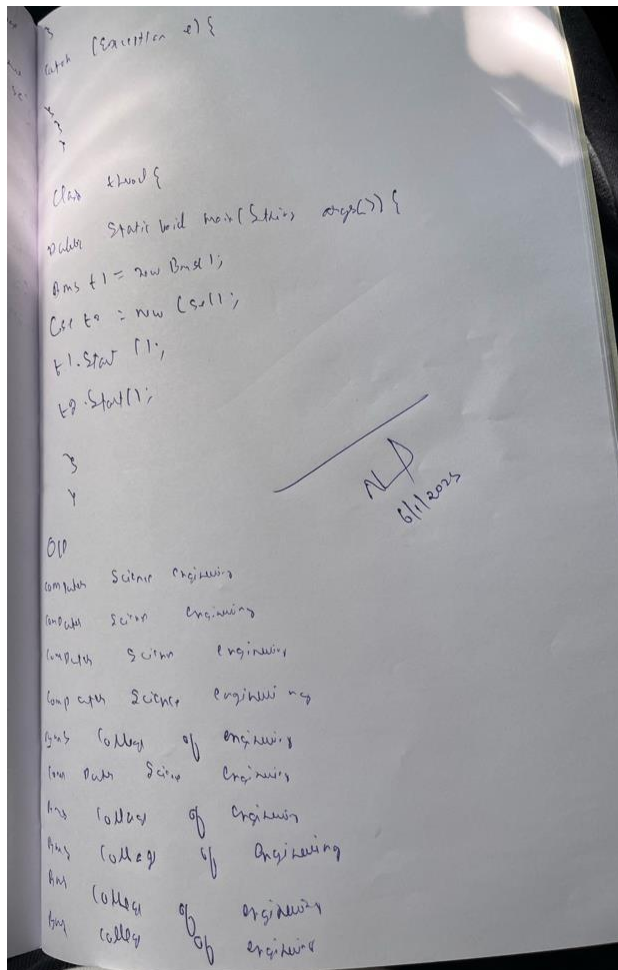 }
catch (Exception e) {
}
}
}
class thread {
public static void main(String args[]) {
Bms t1 = new Bms();
Cse t2 = new Cse();
t1.start();
t2.start();
}
}
O/P
Computer Science Engineering
Computer Science Engineering
Computer Science Engineering
Computer Science Engineering
Bms College of engineering
Computer Science Engineering
Bms College of Engineering
Bms College of Engineering
Bms College of engineering
Bms College of engineering
6/1/2025